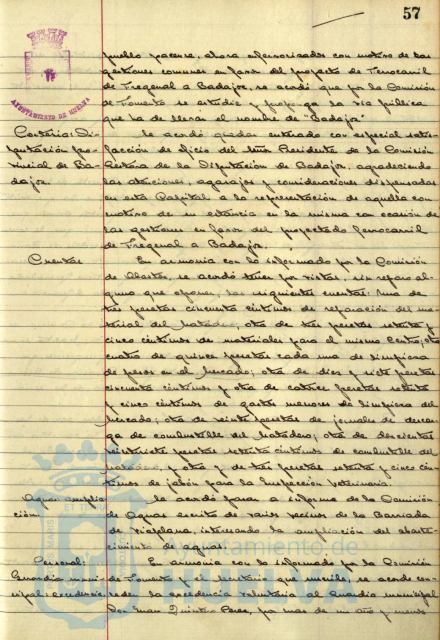 57
AYUNTAMIENTO DE HUELVA
pueblo pacense, ahora exteriorizados con motivo de las
gestiones comunes en favor del proyecto de Ferrocarril
de Fregenal a Badajoz, se acordó que por la Comisión
de Fomento se estudie y proponga la vía pública
que ha de llevar el nombre de "Badajoz"
Cortesia: Di-
putación pro-
vincial de Ba-
dajoz.
Se acordó quedar enterado con especial satis-
facción de oficio del Señor Presidente de la Comisión
Gestora de la Diputación de Badajoz, agradeciendo
las atenciones, agasajos y consideraciones dispensadas
en esta Capital a la representación de aquella con
motivo de su estancia en la misma con ocasión de
las gestiones en favor del proyectado ferrocarril
de Fregenal a Badajoz.
Cuentas
En armonia con lo informado por la Comisión
de Abastos, se acordó tener por vistas, sin reparo al-
guno que oponer, las siguientes cuentas: Una de
tres pesetas cincuenta céntimos de reparación del ma-
terial del Matadero; otra de tres pesetas setenta y
cinco céntimos de materiales para el mismo Centro; otra
cuatro de quince pesetas cada una de limpieza
de pesos en el Mercado; otra de diez y siete pesetas
cincuenta céntimos y otra de catorce pesetas setenta
y cinco céntimos de gastos menores de limpieza del
Mercado; otra de veinte pesetas de jornales de descar-
ga de combustible del Matadero; otra de doscientas
veintisiete pesetas setenta céntimos de combustible del
Matadero, y otra de tres pesetas setenta y cinco cén-
timos de jabón para la Inspección Veterinaria.
Aguas: amplia-
ción.
Se acordó pasar a informe de la Comisión
de Aguas escrito de varios vecinos de la Barriada
de Viaplana, interesando la ampliación del abaste-
cimiento de aguas.
Personal:
Guardia muni-
cipal: excedencia
En armonia con lo informado por la Comisión
de Fomento y el Secretario que suscribe, se acordó con-
ceder la excedencia voluntaria al Guardia municipal
Don Juan Quintero Perez, por mas de un año y menos
Ayuntamiento de
HUELVA